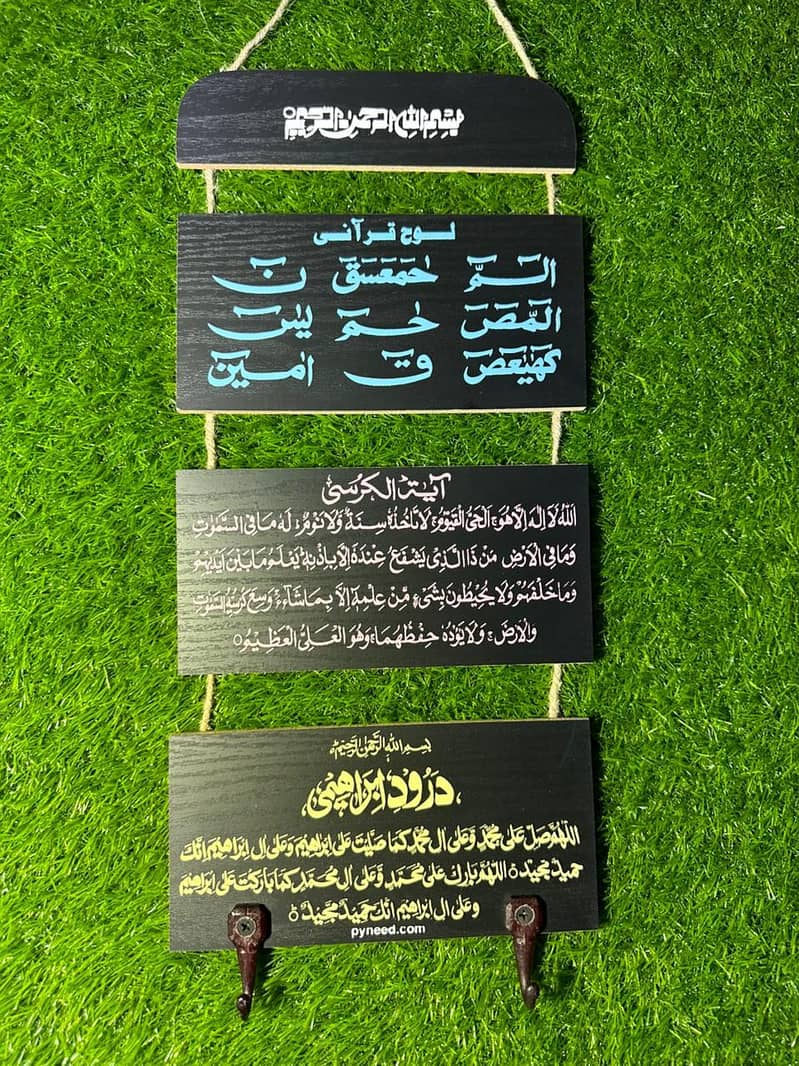 بِسْمِ اللهِ الرَّحْمٰنِ الرَّحِيْمِ
لوح قرآنی
الٓمّٓ حٰمٓعٓسٓقٓ نٓ
الٓمّٓصٓ حٰمٓ يٰسٓ
كٓهٰيٰعٓصٓ قٓ اٰمين
آية الكرسى
اَللهُ لَا اِلٰهَ اِلَّا هُوَ اَلْحَىُّ الْقَيُّوْمُ لَا تَاْخُذُهٗ سِنَةٌ وَّلَا نَوْمٌ لَهٗ مَا فِى السَّمٰوٰتِ
وَمَا فِى الْاَرْضِ مَنْ ذَا الَّذِىْ يَشْفَعُ عِنْدَهٗ اِلَّا بِاِذْنِهٖ يَعْلَمُ مَا بَيْنَ اَيْدِيْهِمْ
وَمَا خَلْفَهُمْ وَلَا يُحِيْطُوْنَ بِشَىْءٍ مِّنْ عِلْمِهٖ اِلَّا بِمَا شَاءَ وَسِعَ كُرْسِيُّهُ السَّمٰوٰتِ
وَالْاَرْضَ وَلَا يَؤُدُهٗ حِفْظُهُمَا وَهُوَ الْعَلِىُّ الْعَظِيْمُ
بسم الله الرحمن الرحيم
دَرُودِ اِبْرَاهِيْمِى
اَللّٰهُمَّ صَلِّ عَلٰى مُحَمَّدٍ وَّعَلٰى اٰلِ مُحَمَّدٍ كَمَا صَلَّيْتَ عَلٰى اِبْرَاهِيْمَ وَعَلٰى اٰلِ اِبْرَاهِيْمَ اِنَّكَ
حَمِيْدٌ مَّجِيْدٌ اَللّٰهُمَّ بَارِكْ عَلٰى مُحَمَّدٍ وَّعَلٰى اٰلِ مُحَمَّدٍ كَمَا بَارَكْتَ عَلٰى اِبْرَاهِيْمَ
وَعَلٰى اٰلِ اِبْرَاهِيْمَ اِنَّكَ حَمِيْدٌ مَّجِيْدٌ
pyneed.com